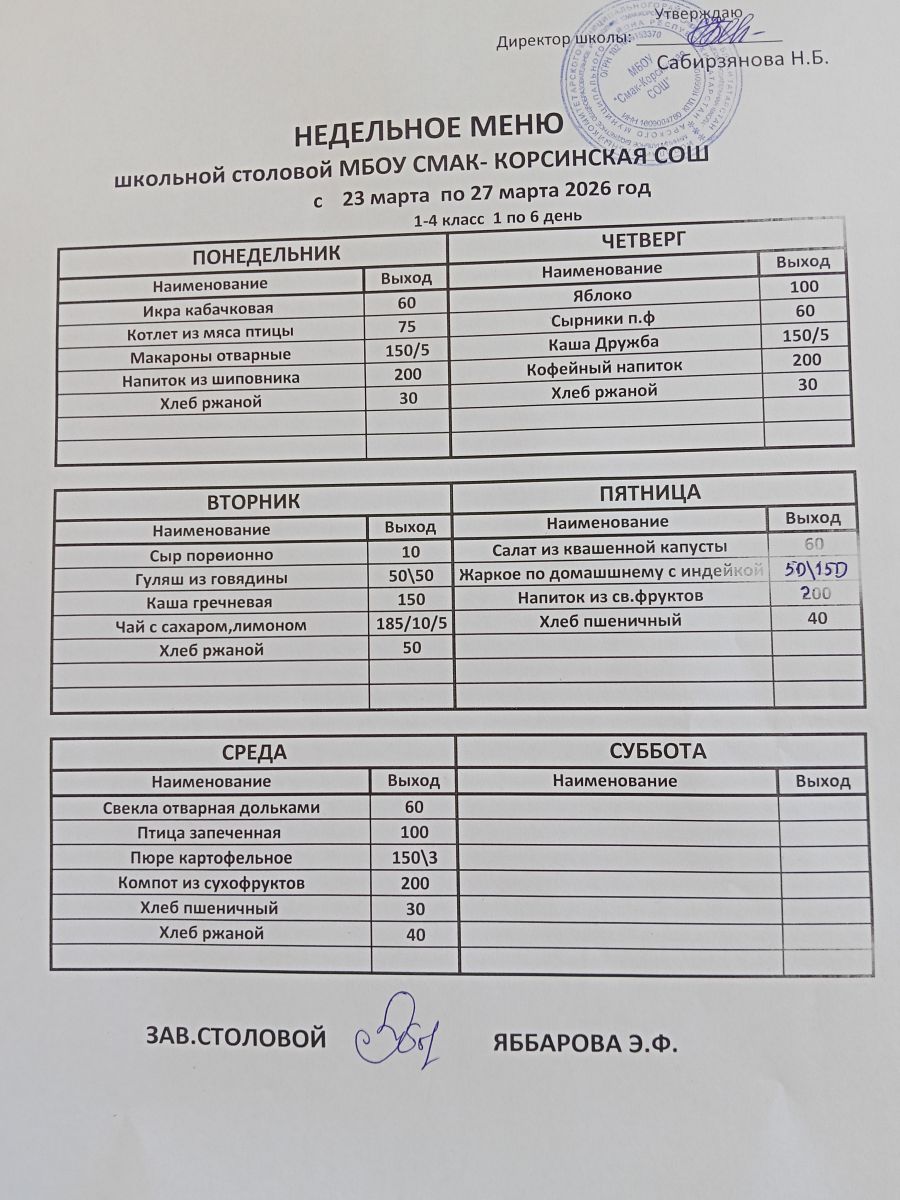 Утверждаю
Директор школы:
Сабирзянова Н.Б.
МБОУ
"Смак-Корсинская
СОШ"
НЕДЕЛЬНОЕ МЕНЮ
школьной столовой МБОУ СМАК- КОРСИНСКАЯ СОШ
с 23 марта по 27 марта 2026 год
1-4 класс 1 по 6 день
ПОНЕДЕЛЬНИК
Наименование Выход
Икра кабачковая 60
Котлет из мяса птицы 75
Макароны отварные 150/5
Напиток из шиповника 200
Хлеб ржаной 30
ЧЕТВЕРГ
Наименование Выход
Яблоко 100
Сырники п.ф 60
Каша Дружба 150/5
Кофейный напиток 200
Хлеб ржаной 30
ВТОРНИК
Наименование Выход
Сыр порвионно 10
Гуляш из говядины 50\50
Каша гречневая 150
Чай с сахаром,лимоном 185/10/5
Хлеб ржаной 50
ПЯТНИЦА
Наименование Выход
Салат из квашенной капусты 60
Жаркое по домашшнему с индейкой 50\150
Напиток из св.фруктов 200
Хлеб пшеничный 40
СРЕДА
Наименование Выход
Свекла отварная дольками 60
Птица запеченная 100
Пюре картофельное 150\3
Компот из сухофруктов 200
Хлеб пшеничный 30
Хлеб ржаной 40
СУББОТА
Наименование Выход
ЗАВ.СТОЛОВОЙ ЯББАРОВА Э.Ф.